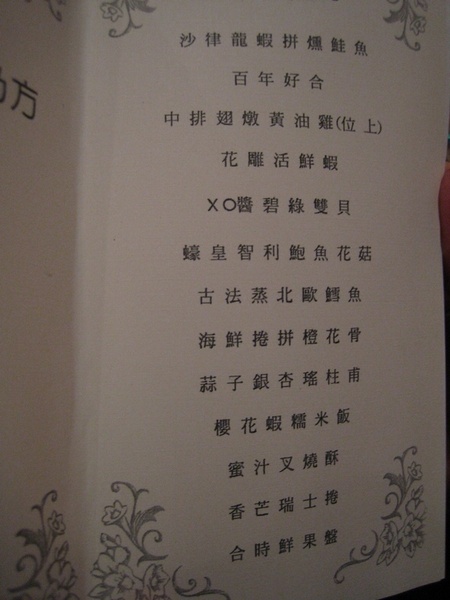 方
沙律龍蝦拼燻鮭魚
百年好合
中排翅燉黃油雞(位上)
花雕活鮮蝦
XO醬碧綠雙貝
蠔皇智利鮑魚花菇
古法蒸北歐鱈魚
海鮮捲拼橙花骨
蒜子銀杏瑤柱甫
櫻花蝦糯米飯
蜜汁叉燒酥
香芒瑞士捲
合時鮮果盤